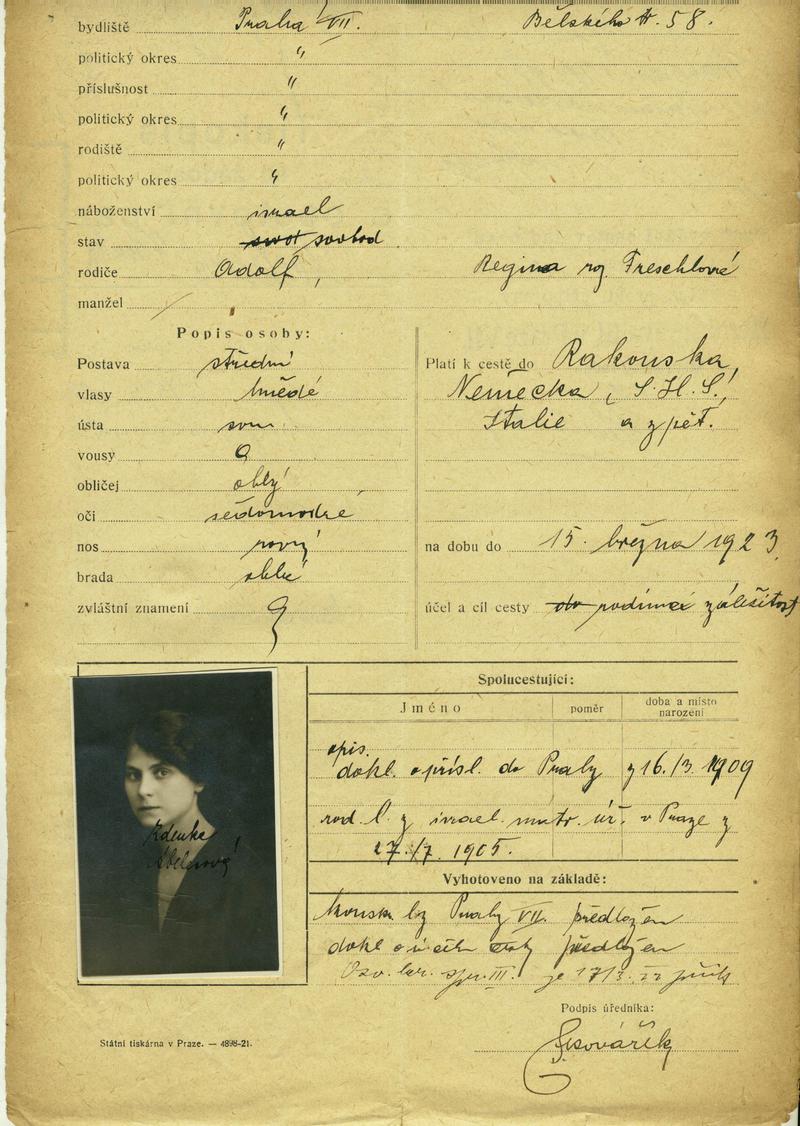 bydliště Praha VII. Bělského tř. 58.
politický okres "
příslušnost "
politický okres "
rodiště "
politický okres "
náboženství israel
stav svobod
rodiče Adolf, Regina roz. Freschlová
manžel
Popis osoby:
Postava střední
vlasy hnědé
ústa soum.
vousy 0
obličej oblý
oči šedomodré
nos rovný
brada oblá
zvláštní znamení 0
Platí k cestě do Rakouska,
Německa, S.H.S.,
Italie a zpět.
na dobu do 15. března 1923
účel a cíl cesty rodinná záležitost
Spolucestující:
Jméno poměr doba a místo narození
opis.
dokl. o přísl. do Prahy z 16./3. 1909
rod. l. z israel. matr. úř. v Praze z
27./7. 1905.
Vyhotoveno na základě:
Prahy VII. předložen
dokl. předložen
III. 17/3. 22
Zdenka
Abelesová
Podpis úředníka:
Státní tiskárna v Praze. — 4898-21.